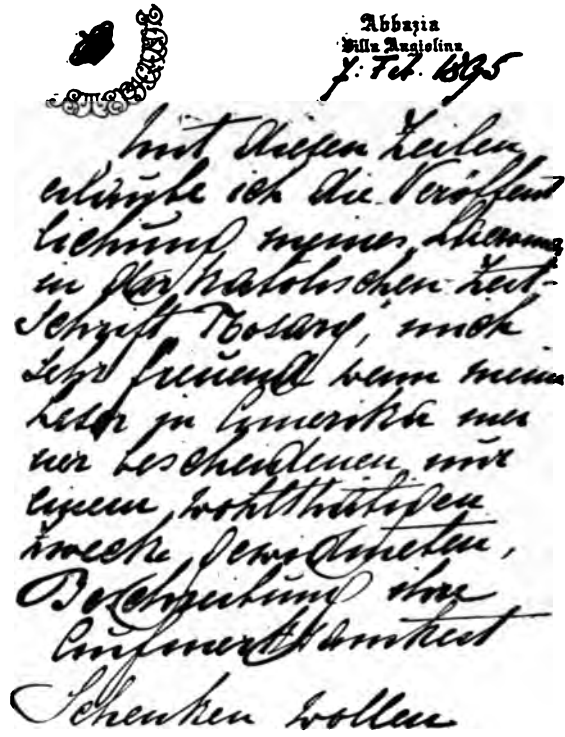 Abbazia
Villa Angiolina
7. Feb. 1895
Mit diesen Zeilen
erlaube ich die Veröffent
lichung meines Lacroma
in der katolischen Zeit-
schrift Rosary, mich
sehr freuend wenn meine
Leser in Amerika mei
ner bescheidenen nur
einem wohlthätigen
Zwecke gewidmeten,
Beschreibung ihre
Aufmerksamkeit
schenken wollen